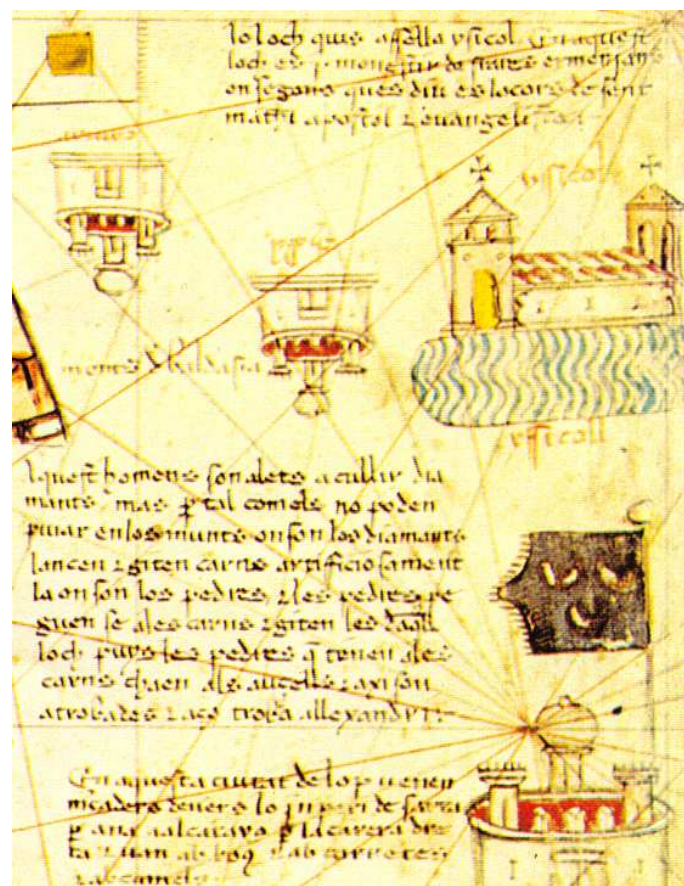 lo loch quis apella ysicol en aquest
loch es .j. monestir de frares ermenians
on segons ques diu es lo cors de sent
matheu apostol z evangelista
ysicol
monts d baldasia
ysicoll
Aquests homens son alets a cullir dia
mants mas p tal com els no poden
puiar en los munts on son los diamants
lancen z giten carns artificiosament
la on son les pedres, z les pedres pe
guen se a les carns z giten les daqll
loch puys les pedres q tenen a les
carns chaen als aucells z axi son
atrobades z aço troba allexandri
En aquesta ciutat de lop venen
mcaders devers lo inperi de sarra
p ana al catayo p la carera dre
ta z van ab boq z ab carretes
z ab camels